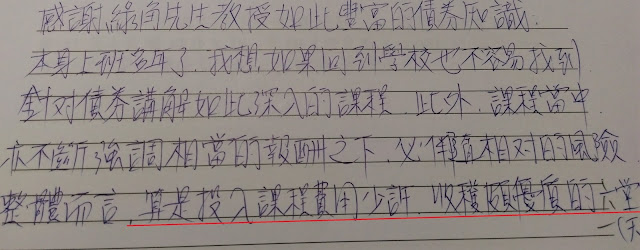 感謝綠角先生教授如此豐富的債券知識.
本身上班多年了.我想如果回到學校也不容易找到
針對債券講解如此深入的課程.此外.課程當中
亦不斷強調相當的報酬之下.必伴隨相对的風險
整體而言.算是投入課程費用少許.收穫頗優質的六堂
一天